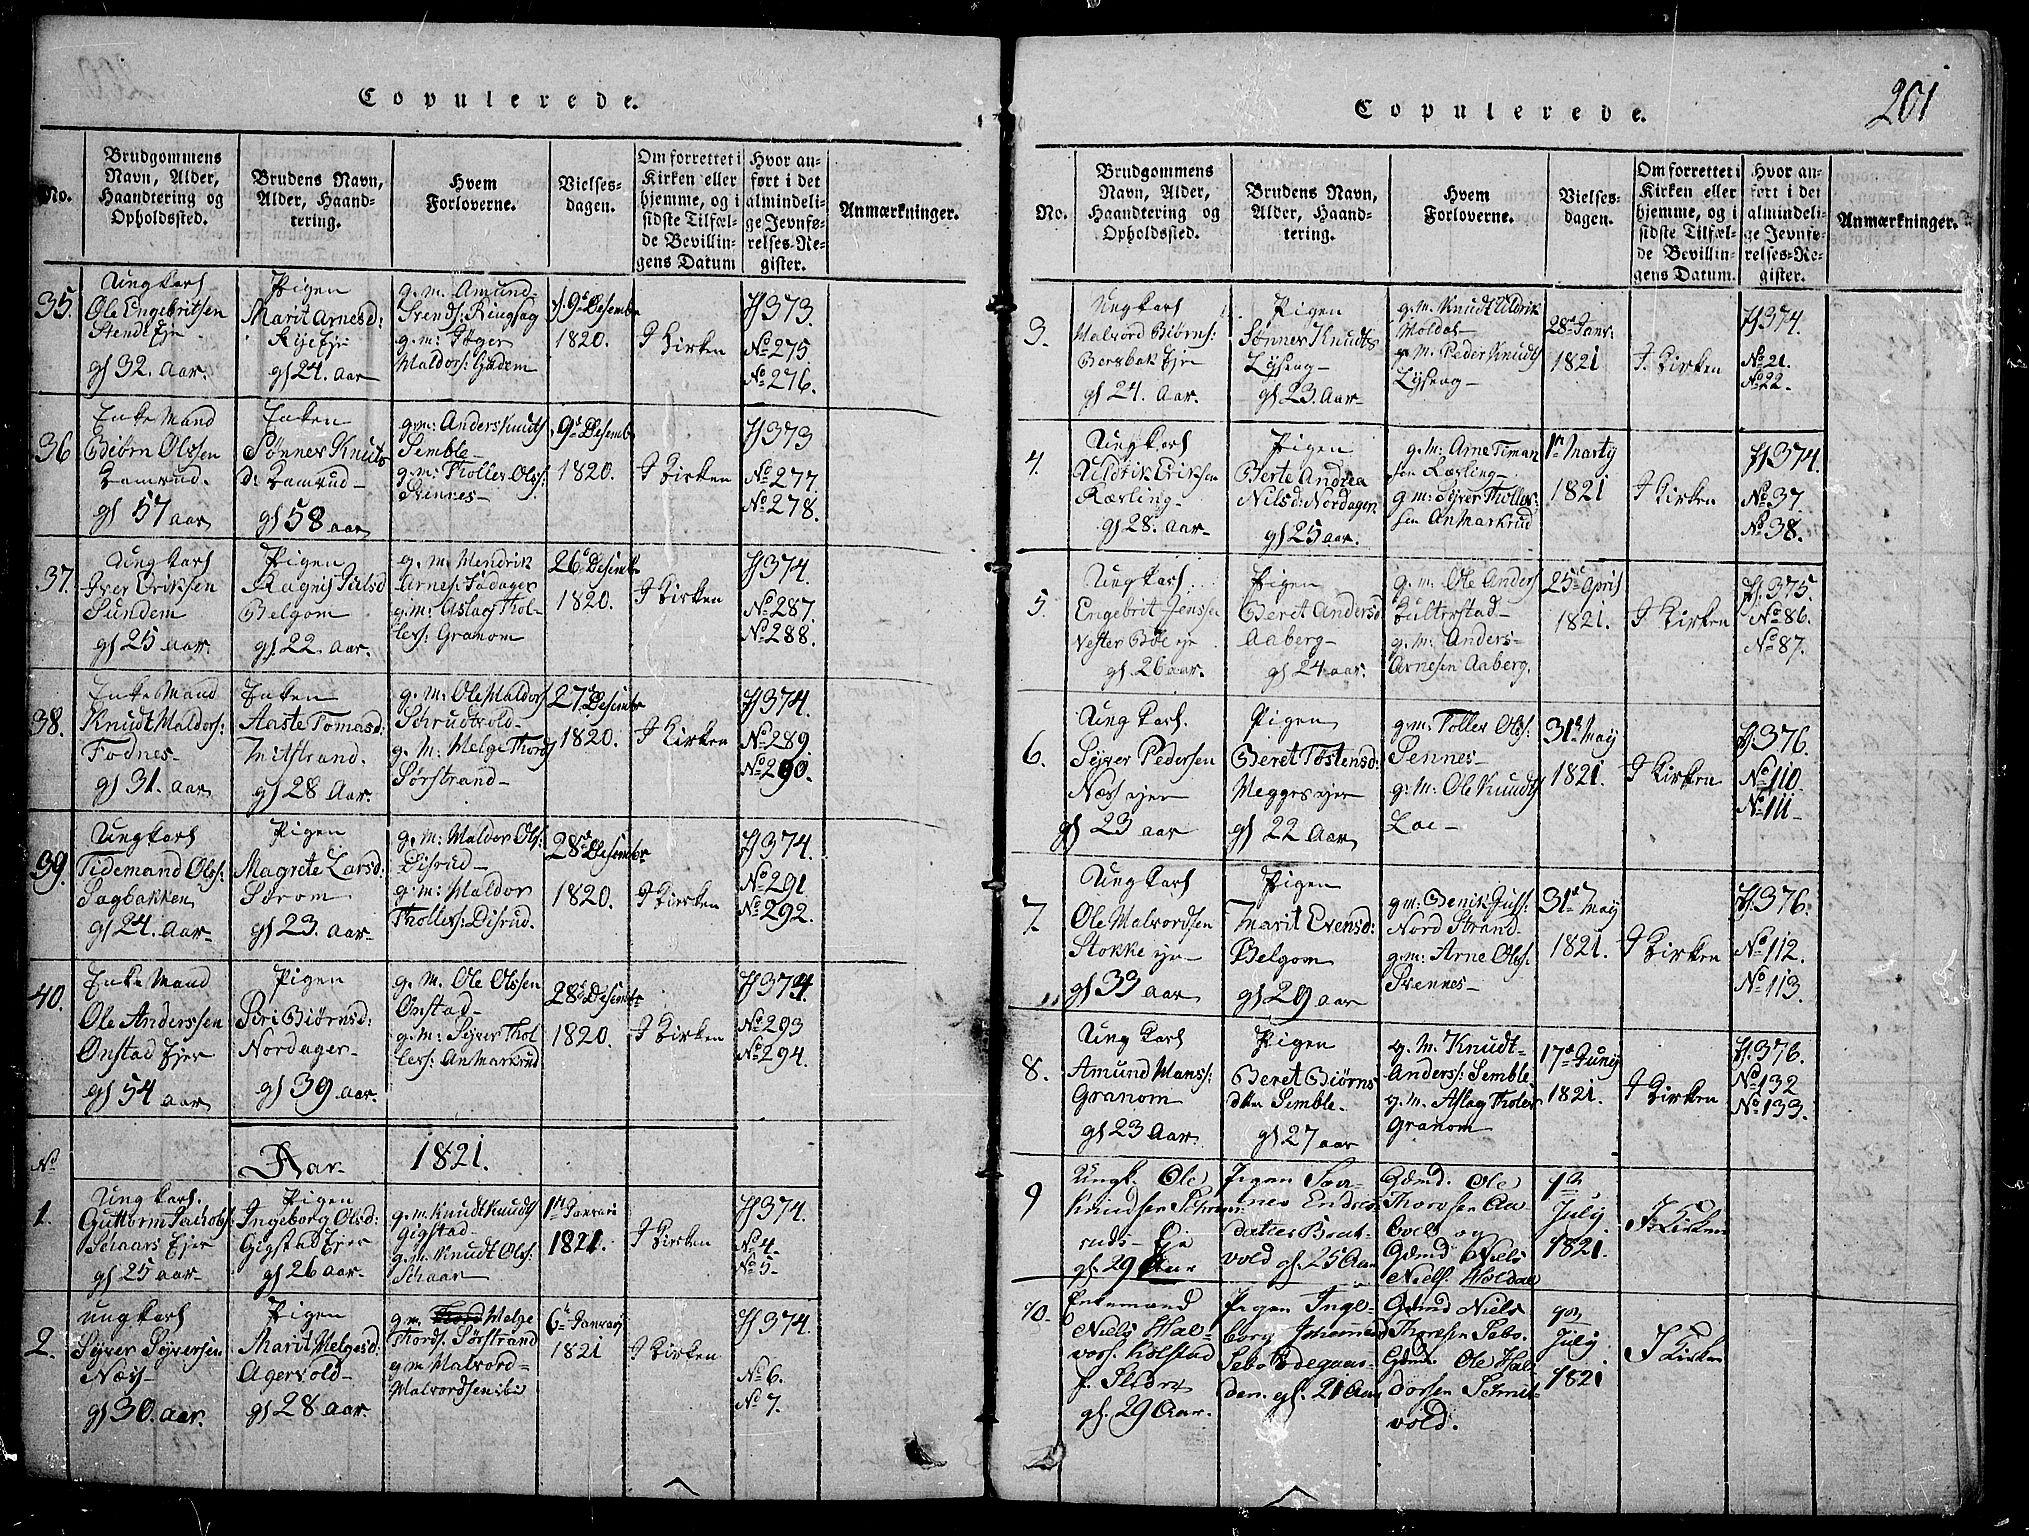 Copulerede.
No.
Brudgommens Navn, Alder, Haandtering og Opholdssted.
Brudens Navn, Alder, Haandtering.
Hvem Forloverne.
Vielsesdagen.
Om forrettet i Kirken eller hjemme, og i sidste Tilfælde Bevillingens Datum
Hvor anført i det almindelige Jevnførelses-Register.
Anmærkninger.
35.
Ungkarl
Ole Engebritsen
Stende Eje
gl 32. Aar.
Pigen
Marit Arnesd:
Rye Eje
gl 24. aar
g. m. Amund
Svends: Ringsag
g. m:
Haldors: Gadem
9d Desembr
1820.
I Kirken
H 373.
No 275
No 276.
36
Enke Mand
Biørn Olssen
Bamrud.
gl 57 aar
Enken
Sønnev Knuts
d: Bamrud
gl 58 aar
g. m: Anders Knuds
Semble
g. m: Tholler Ols:
Svennes
9d Desembr
1820.
I Kirken
H 373
No 277.
No 278.
37.
Ungkarl
Iver Eriksen
Sundem
gl 25 aar
Pigen
Ragnil Juelsd
Belgom
gl. 22. aar.
g. m. Hendrik
Arnes: Fødager
g. m: Aslag Thol-
lers: Granom
26d Desembr
1820.
I Kirken
H 374.
No 287.
No 288.
38.
Enke Mand
Knudt Haldors:
Fodnes
gl 31. aar
Enken
Aaste Tomasd:
Mitstrand.
gl 28 Aar.
g. m. Ole Haldors
Schrudtvold
g. m. Helge Thords
Sørstrand
27d Desembr
1820.
I Kirken
H 374.
No 289.
No 290.
39.
Ungkarl
Tidemand Ols:
Sagbakken
gl 24. Aar
Pigen
Magrete Larsd:
Sørom
gl 23. aar
g. m: Haldor Ols:
Disrud
g. m: Haldor
Thollers: Disrud.
28d Desembr
1820.
I Kirken
H 374.
No 291
No 292.
40.
Enke Mand
Ole Anderssen
Onstad Ejer
gl 54 aar
Pigen
Siri Biørnsd:
Nordager
gl 39 aar.
g. m. Ole Olssen
Onstad
g. m: Syver Thol
lers: Anmarkrud
28d Desembr
1820.
I Kirken
H 374
No 293
No 294.
No
Aar 1821.
1.
Ungkarl.
Guttorm Jachobs:
Schaars Ejer
gl 25 aar
Pigen
Ingeborg Olsd:
Gigstad Ejer
gl 26 aar.
g. m. Knudt Knudts
Gigstad
g. m. Knudt Ols:
Schaar
1ste Januari
1821.
I Kirken
H 374.
No 4.
No 5
2.
ungkarl
Syver Syversen
Næs
gl 30. aar.
Pigen
Marit Helgesd:
Agervold
gl 28 aar.
g. m. Helge
Thords. Sørstrand
g. m Halvord
Halvordsen ibi
6te Januarj
1821
I Kirken
H 374.
No 6.
No 7.
201
Copulerede.
No.
Brudgommens Navn, Alder, Haandtering og Opholdssted.
Brudens Navn, Alder, Haandtering.
Hvem Forloverne.
Vielsesdagen.
Om forrettet i Kirken eller hjemme, og i sidste Tilfælde Bevillingens Datum.
Hvor anført i det almindelige Jevnførelses-Register.
Anmærkninger.
3.
Ungkarl
Halvord Biørns:
Børsbak Eje
gl 24. Aar.
Pigen
Sønnev Knudts
Lyseng
gl. 23. Aar
g. m. Knudt Uldrik
Moldal
g. m. Peder Knudts
Lyseng
28d Janr:
1821
I. Kirken
H 374.
No 21.
No 22.
4.
Ungkarl
Uldrik Eriksen
Ræsling
gl 28. Aar
Pigen
Berte Andrea
Nilsd: Nordagen
gl 25 aar.
g. m: Arne Timan
sen Ræsling
g m: Syver Tholler-
sen Anmarkrud
1te Marty
1821
I Kirken
H 374.
No 37.
No 38.
5.
Ungkarl.
Engebrit Jenssen
Vester Bøe eje
gl 26 aar
Pigen
Beret Andersd
Aaberg
gl 24 aar.
g. m. Ole Anders
Bulterstad
g. m: Anders
Arnesen Aaberg.
25de April
1821.
I Kirken
H. 375.
No 86.
No 87.
6.
Ungkarl.
Syver Pedersen
Næss ejer
gl 23 aar
Pigen
Beret Tøstensd:
Hegges ejer
gl 22 Aar
g. m: Toller Ols:
Svennes
g. m: Ole Knudts
Loe
31d May
1821.
I Kirken
H. 376.
No 110.
No 111
7.
Ungkarl
Ole Halvordsen
Stokke eje
gl 33 aar
Pigen
Marit Evensd:
Belgom
gl 29 aar
g m: Benik Juls:
Nord Strand
g. m: Arne Ols:
Svennes
31d May
1821.
I Kirken
H. 376.
No 112.
No 113.
8.
Ungkarl
Amund Hanss:
Granom
gl 23 Aar
Pigen
Beret Biørns
dtr Semble.
gl 27 aar
g. m. Knudt
Anders: Semble
g. m. Aslag Tholer
Granom
17d Juny
1821.
I Kirken
H. 376.
No 132
No 133.
9
Ungk. Ole
Knudsen
ruds Eje
gl. 29 Aar
Pigen
Endres
datter Brat-
vold gl. 25 Aar
Gdmd. Ole
Thorsen Aa-
vold og
Gdmd Niels
Niels: Holdal
1ste
July
1821.
I Kirken
10.
Enkemand
Niels Hal-
vors. Kolstad
f. Slidre
gl. 29 Aar.
Pigen Inge-
borg Johannesd
Sebo Ødegaar-
den. gl. 21 Aar
Gdmd Niels
Thoresen Sebo.
Gdmd. Ole Hal-
dorsen Schrut-
vold.
July
1821
I Kirken